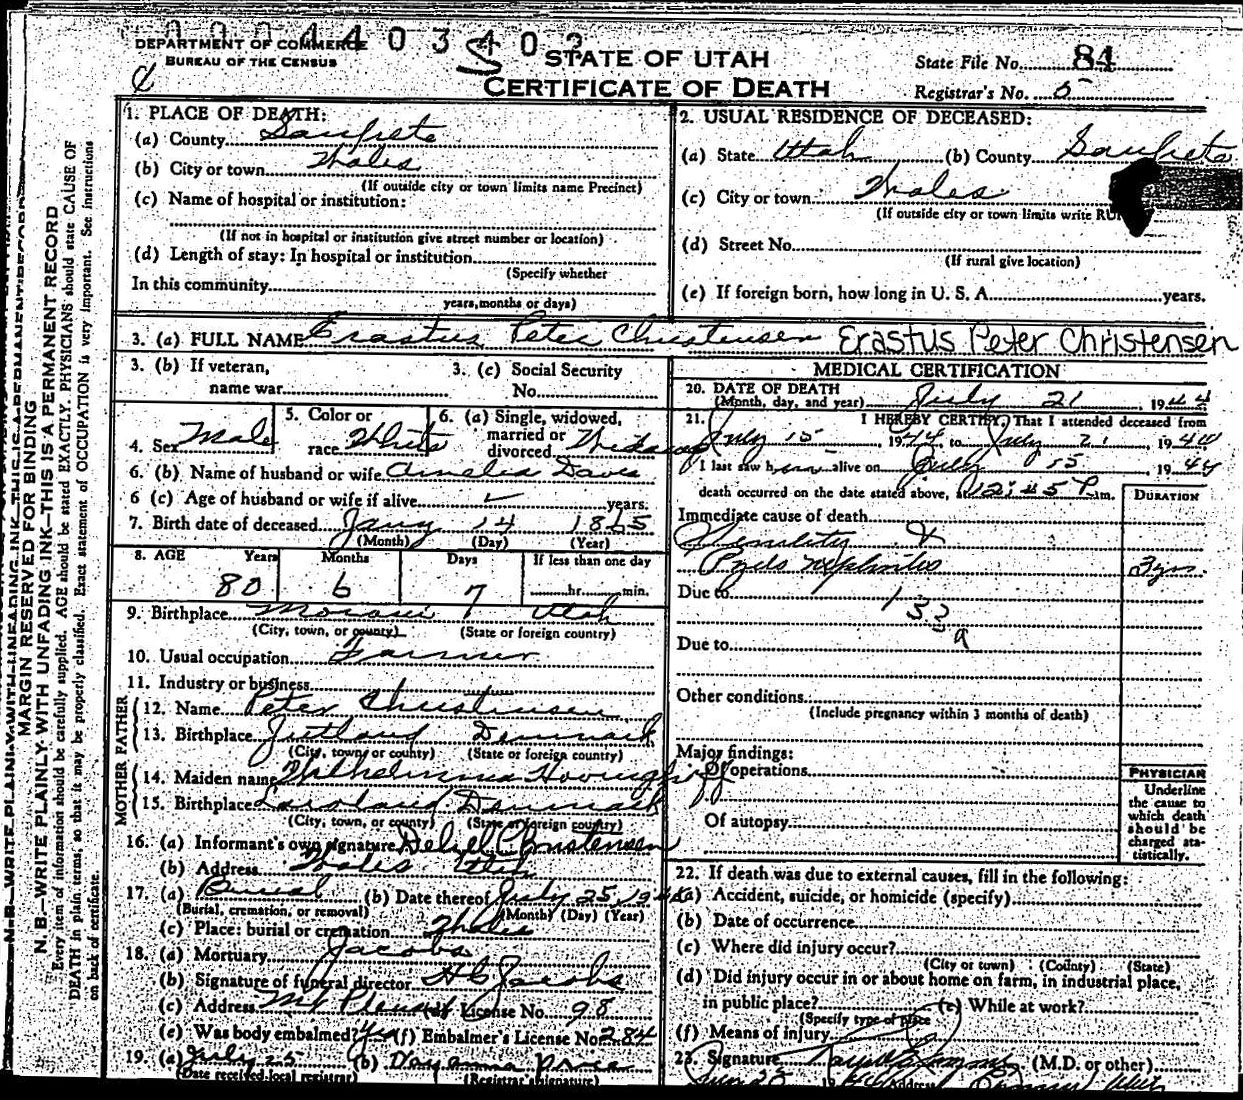 0004403403
DEPARTMENT OF COMMERCE
BUREAU OF THE CENSUS
STATE OF UTAH
CERTIFICATE OF DEATH
State File No. 84
Registrar's No. 5
1. PLACE OF DEATH:
(a) County Sanpete
(b) City or town Wales
(If outside city or town limits name Precinct)
(c) Name of hospital or institution:
(If not in hospital or institution give street number or location)
(d) Length of stay: In hospital or institution
(Specify whether
In this community
years, months or days)
2. USUAL RESIDENCE OF DECEASED:
(a) State Utah (b) County Sanpete
(c) City or town Wales
(If outside city or town limits write RU
(d) Street No.
(If rural give location)
(e) If foreign born, how long in U. S. A. years.
3. (a) FULL NAME Erastus Peter Christensen Erastus Peter Christensen
3. (b) If veteran, name war
3. (c) Social Security No.
4. Sex Male
5. Color or race White
6. (a) Single, widowed, married or divorced Widowed
6. (b) Name of husband or wife Amelia Davis
6 (c) Age of husband or wife if alive years.
7. Birth date of deceased Jany 14 1865
(Month) (Day) (Year)
8. AGE Years Months Days If less than one day
80 6 7 hr. min.
9. Birthplace Moroni Utah
(City, town, or county) (State or foreign country)
10. Usual occupation Farmer
11. Industry or business
FATHER
12. Name Peter Christensen
13. Birthplace Jutland Denmark
(City, town or county) (State or foreign country)
MOTHER
14. Maiden name Wilhelmina
15. Birthplace Denmark
(City, town, or county) (State or foreign country)
16. (a) Informant's own signature Delzell Christensen
(b) Address Wales Utah
17. (a) Burial (b) Date thereof July 25, 1944
(Burial, cremation, or removal) (Month) (Day) (Year)
(c) Place: burial or cremation Wales
18. (a) Mortuary Jacobs
(b) Signature of funeral director H C Jacobs
(c) Address Mt Pleasant (d) License No. 98
(e) Was body embalmed? Yes (f) Embalmer's License No. 284
19. (a) July 25 (b) Price
(Date received local registrar) (Registrar's signature)
MEDICAL CERTIFICATION
20. DATE OF DEATH
(Month, day, and year) July 21, 1944
21. I HEREBY CERTIFY, That I attended deceased from
July 15, 1944, to July 21, 1944
I last saw him alive on July 15, 1944
death occurred on the date stated above, at 12:45 P.m.
DURATION
Immediate cause of death
Senility &
Pyelo Nephritis 3 yrs.
Due to 133a
Due to
Other conditions
(Include pregnancy within 3 months of death)
Major findings:
Of operations
Of autopsy
PHYSICIAN
Underline
the cause to
which death
should be
charged sta-
tistically.
22. If death was due to external causes, fill in the following:
(a) Accident, suicide, or homicide (specify)
(b) Date of occurrence
(c) Where did injury occur?
(City or town) (County) (State)
(d) Did injury occur in or about home on farm, in industrial place,
in public place? (e) While at work?
(Specify type of place
(f) Means of injury
23. Signature (M.D. or other)
MARGIN RESERVED FOR BINDING
N. B.—WRITE PLAINLY WITH UNFADING INK—THIS IS A PERMANENT RECORD
Every item of information should be carefully supplied. AGE should be stated EXACTLY. PHYSICIANS should state CAUSE OF
DEATH in plain terms, so that it may be properly classified. Exact statement of OCCUPATION is very important. See instructions
on back of certificate.